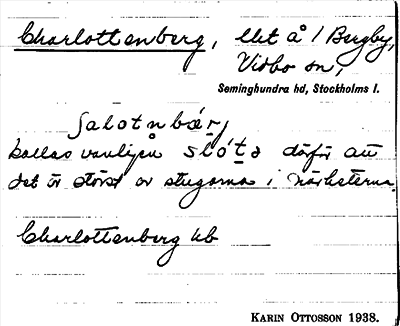 Charlottenberg, lht å / Bergby,
Vidbo sn,
Seminghundra hd, Stockholms l.
salotnbærj
kallas vanligen slóta därför att
det är störst av stugorna i närheterna.
Charlottenberg kb
KARIN OTTOSSON 1938.